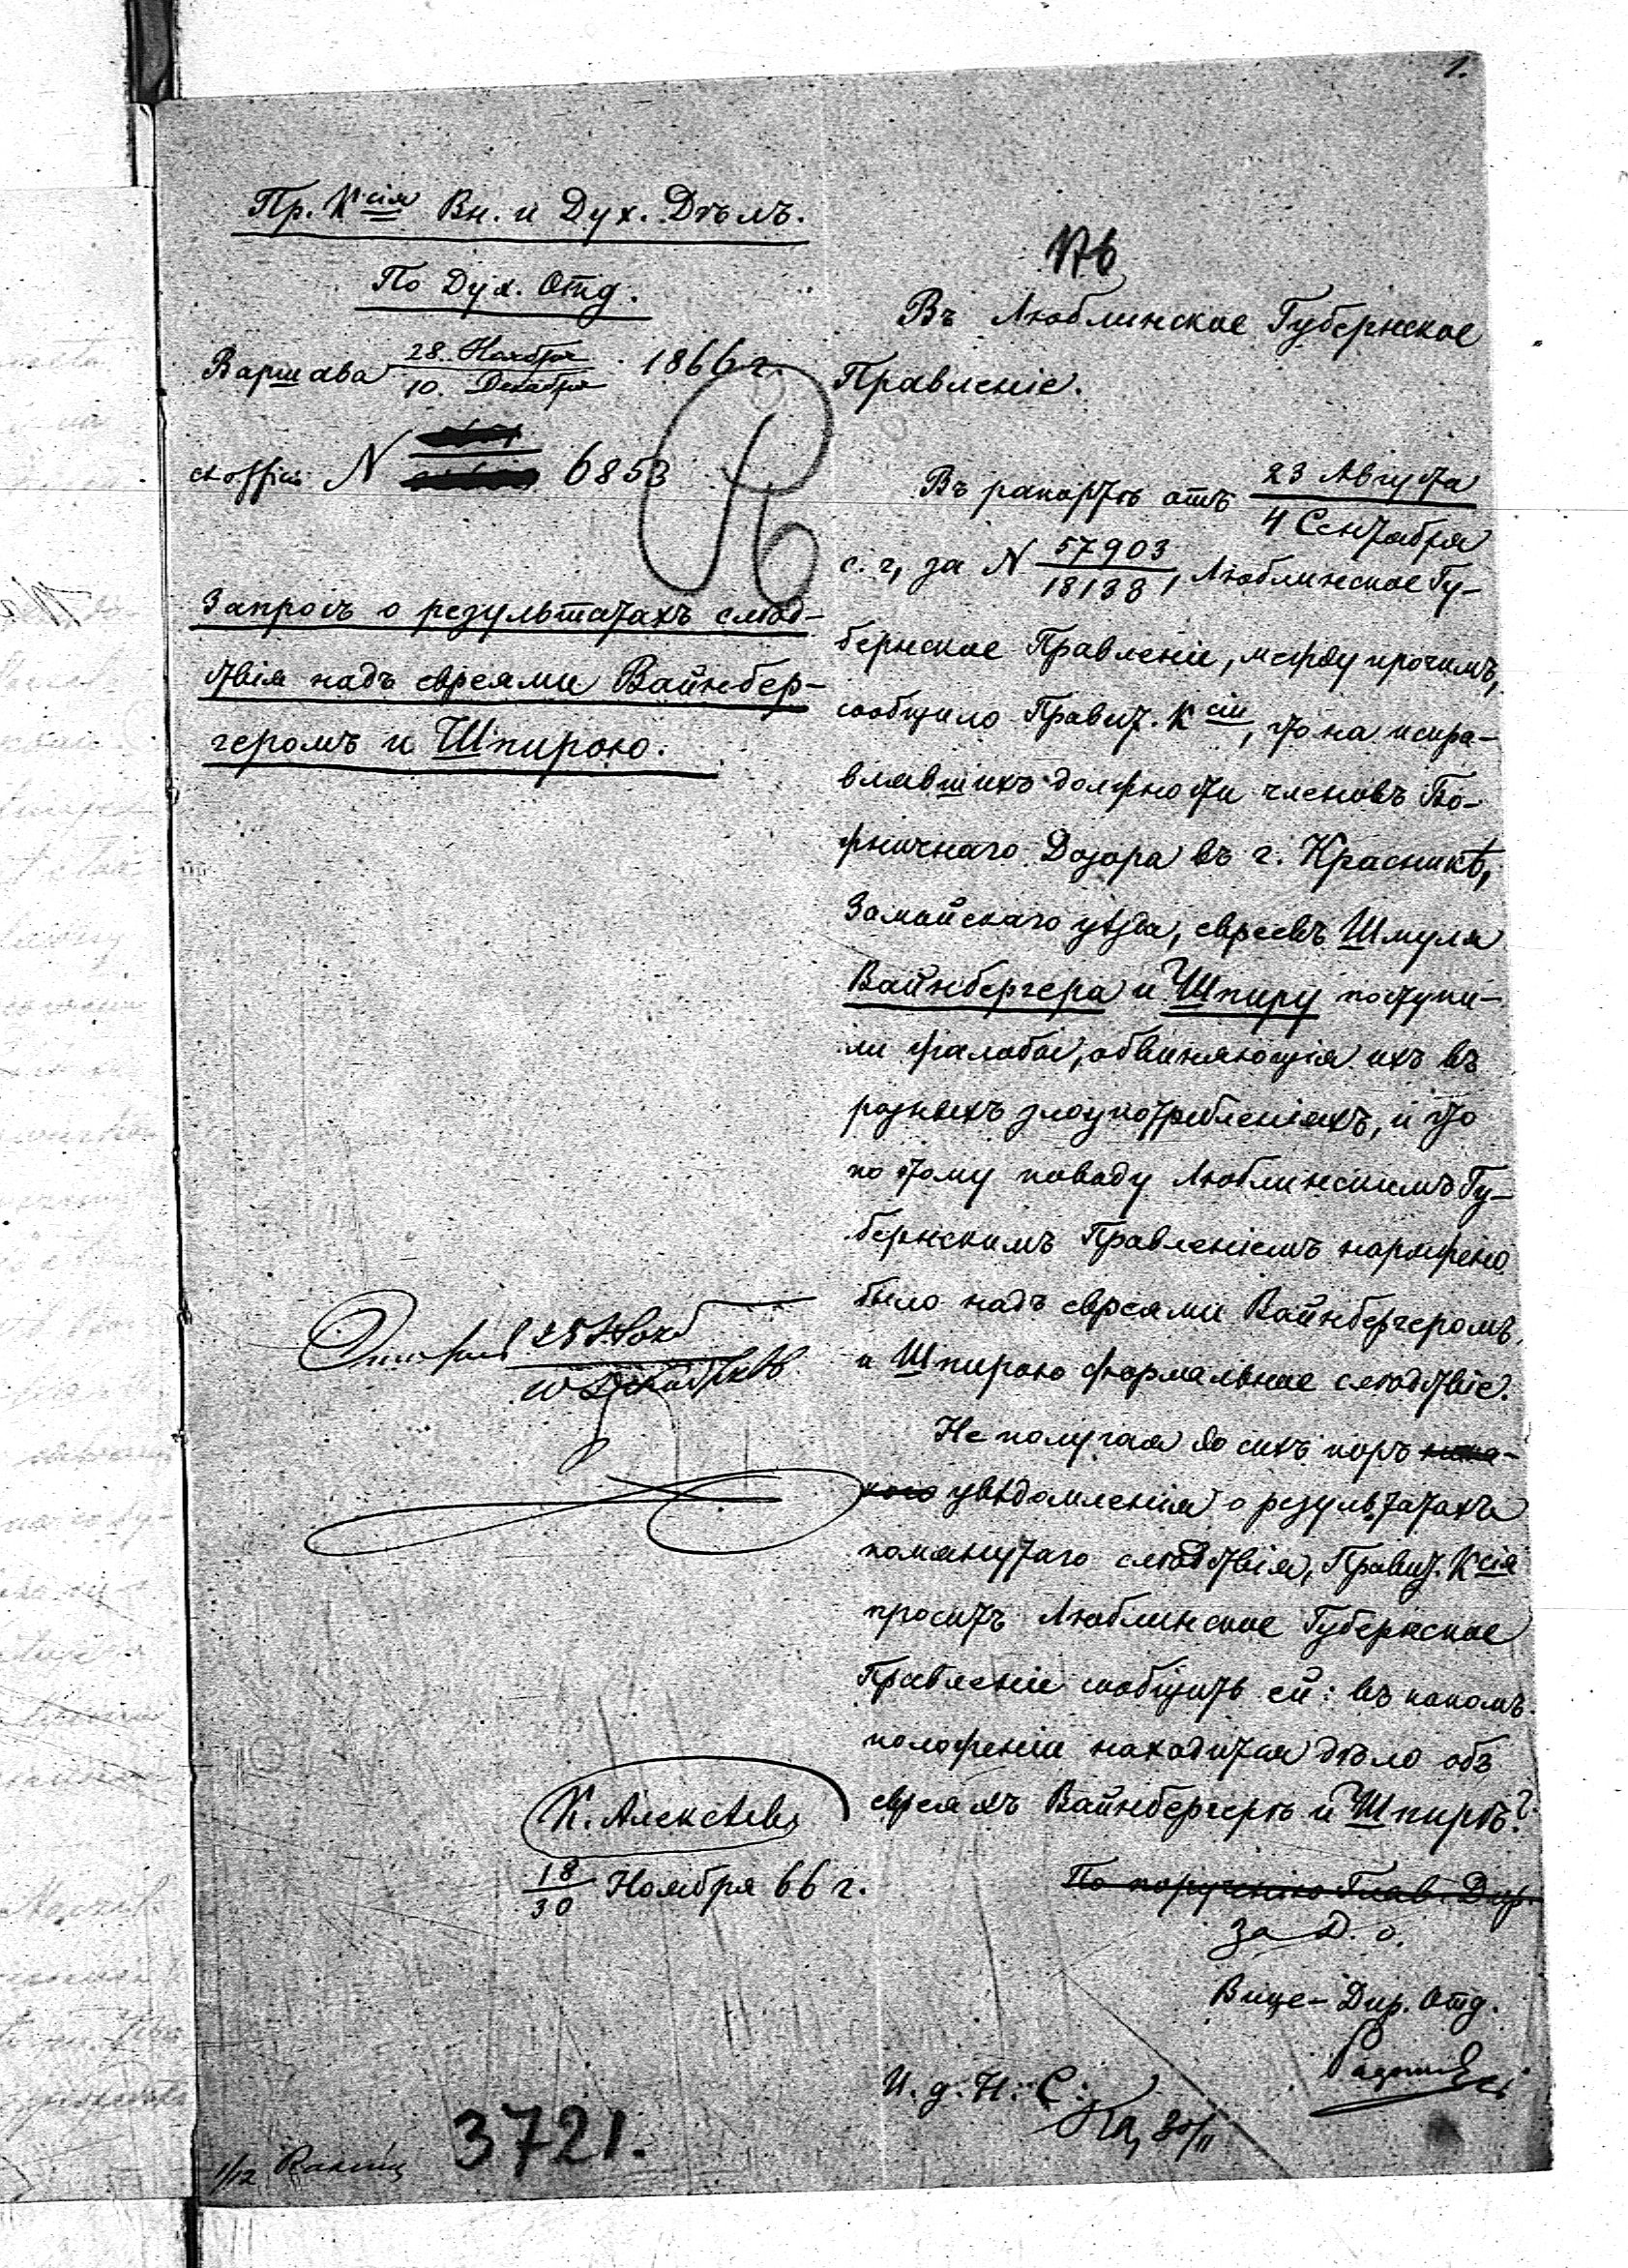 1.
Пр. Ксія Вн. и Дух. Дѣлъ.
По Дух. Отд.
Варшава 28. Ноября / 10. Декабря 1866 г.
ex officio N 6853
Запросъ о результатахъ слѣд-
ствія надъ евреями Вайнбер-
геромъ и Шпирою.
Въ Люблинское Губернское
Правленіе.
Въ рапортѣ отъ 23 Августа / 4 Сентября
с. г., за N 57903 / 18138, Люблинское Гу-
бернское Правленіе, между прочимъ,
сообщило Правит. Ксіи, что на испра-
влявшихъ должности членовъ Бо-
жничнаго Дозора въ г. Красникѣ,
Замойскаго уѣзда, евреевъ Шмуля
Вайнбергера и Шпиру поступи-
ли жалобы, обвиняющія ихъ въ
разныхъ злоупотребленіяхъ, и что
по этому поводу Люблинскимъ Гу-
бернскимъ Правленіемъ наряжено
было надъ евреями Вайнбергеромъ
и Шпирою формальное слѣдствіе.
Не получая до сихъ поръ ника-
кого увѣдомленія о результатахъ
помянутаго слѣдствія, Правит. Ксія
проситъ Люблинское Губернское
Правленіе сообщить ей: въ какомъ
положеніи находится дѣло объ
евреяхъ Вайнбергерѣ и Шпирѣ?
По порученію Глав. Дир.
За Д. о.
Вице-Дир. Отд.
И. д. Н. С.
30/11
К. Алексѣевъ
18/30 Ноября 66 г.
3721.
1/12